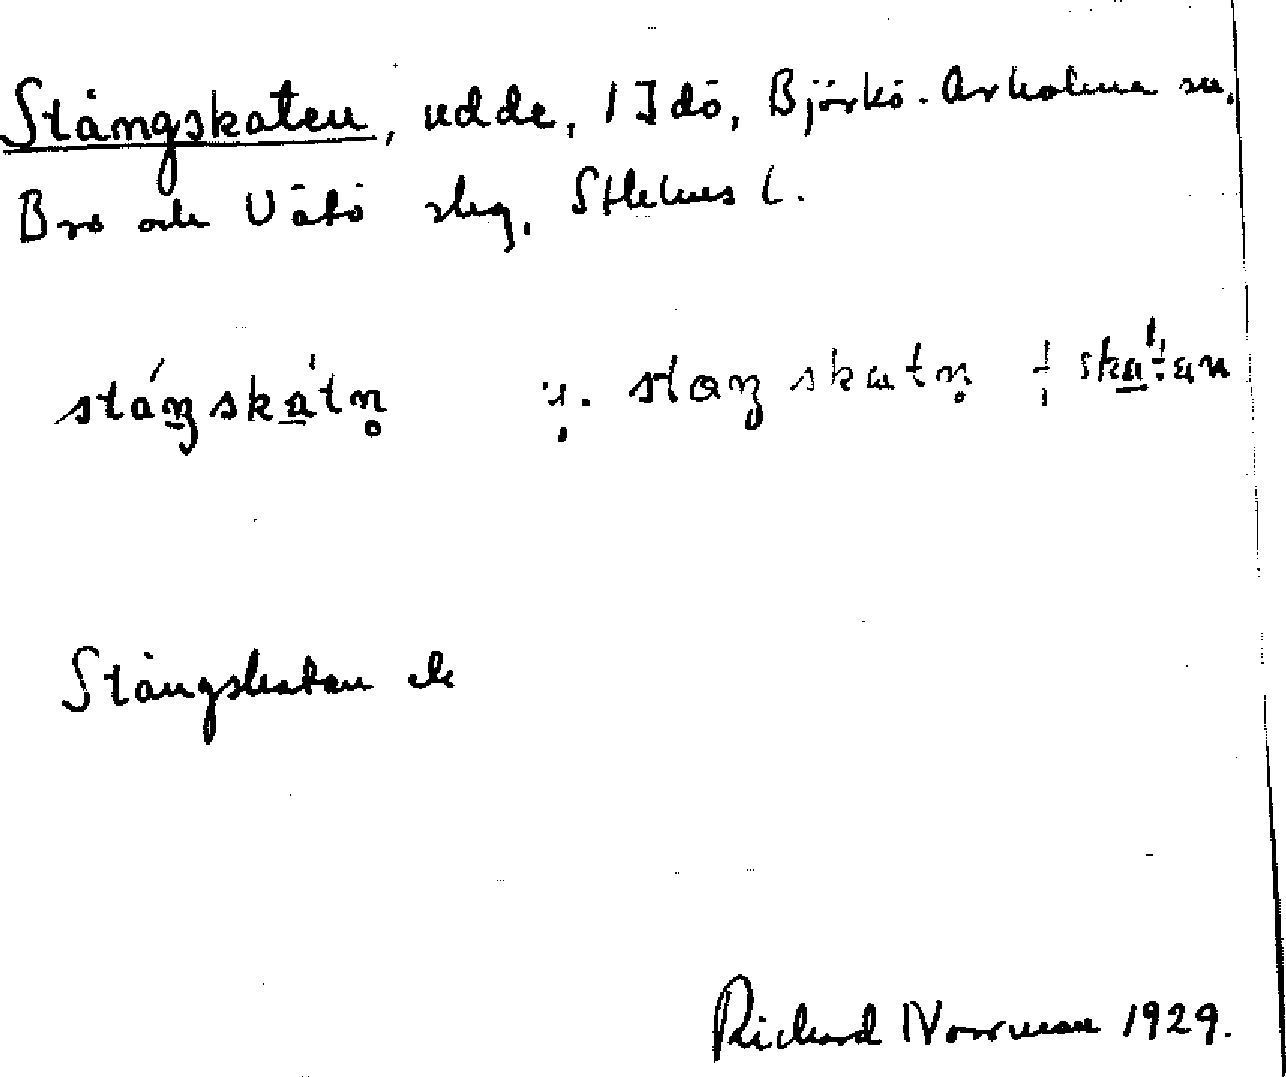 Stångskaten, udde, 1 Idö, Björkö-Arholma sn.
Bro och Vätö slag, Sthlms l.
stáŋskátn̥ staŋskatn̥ skátan
Stångskatan ek
Richard Norrman 1929.